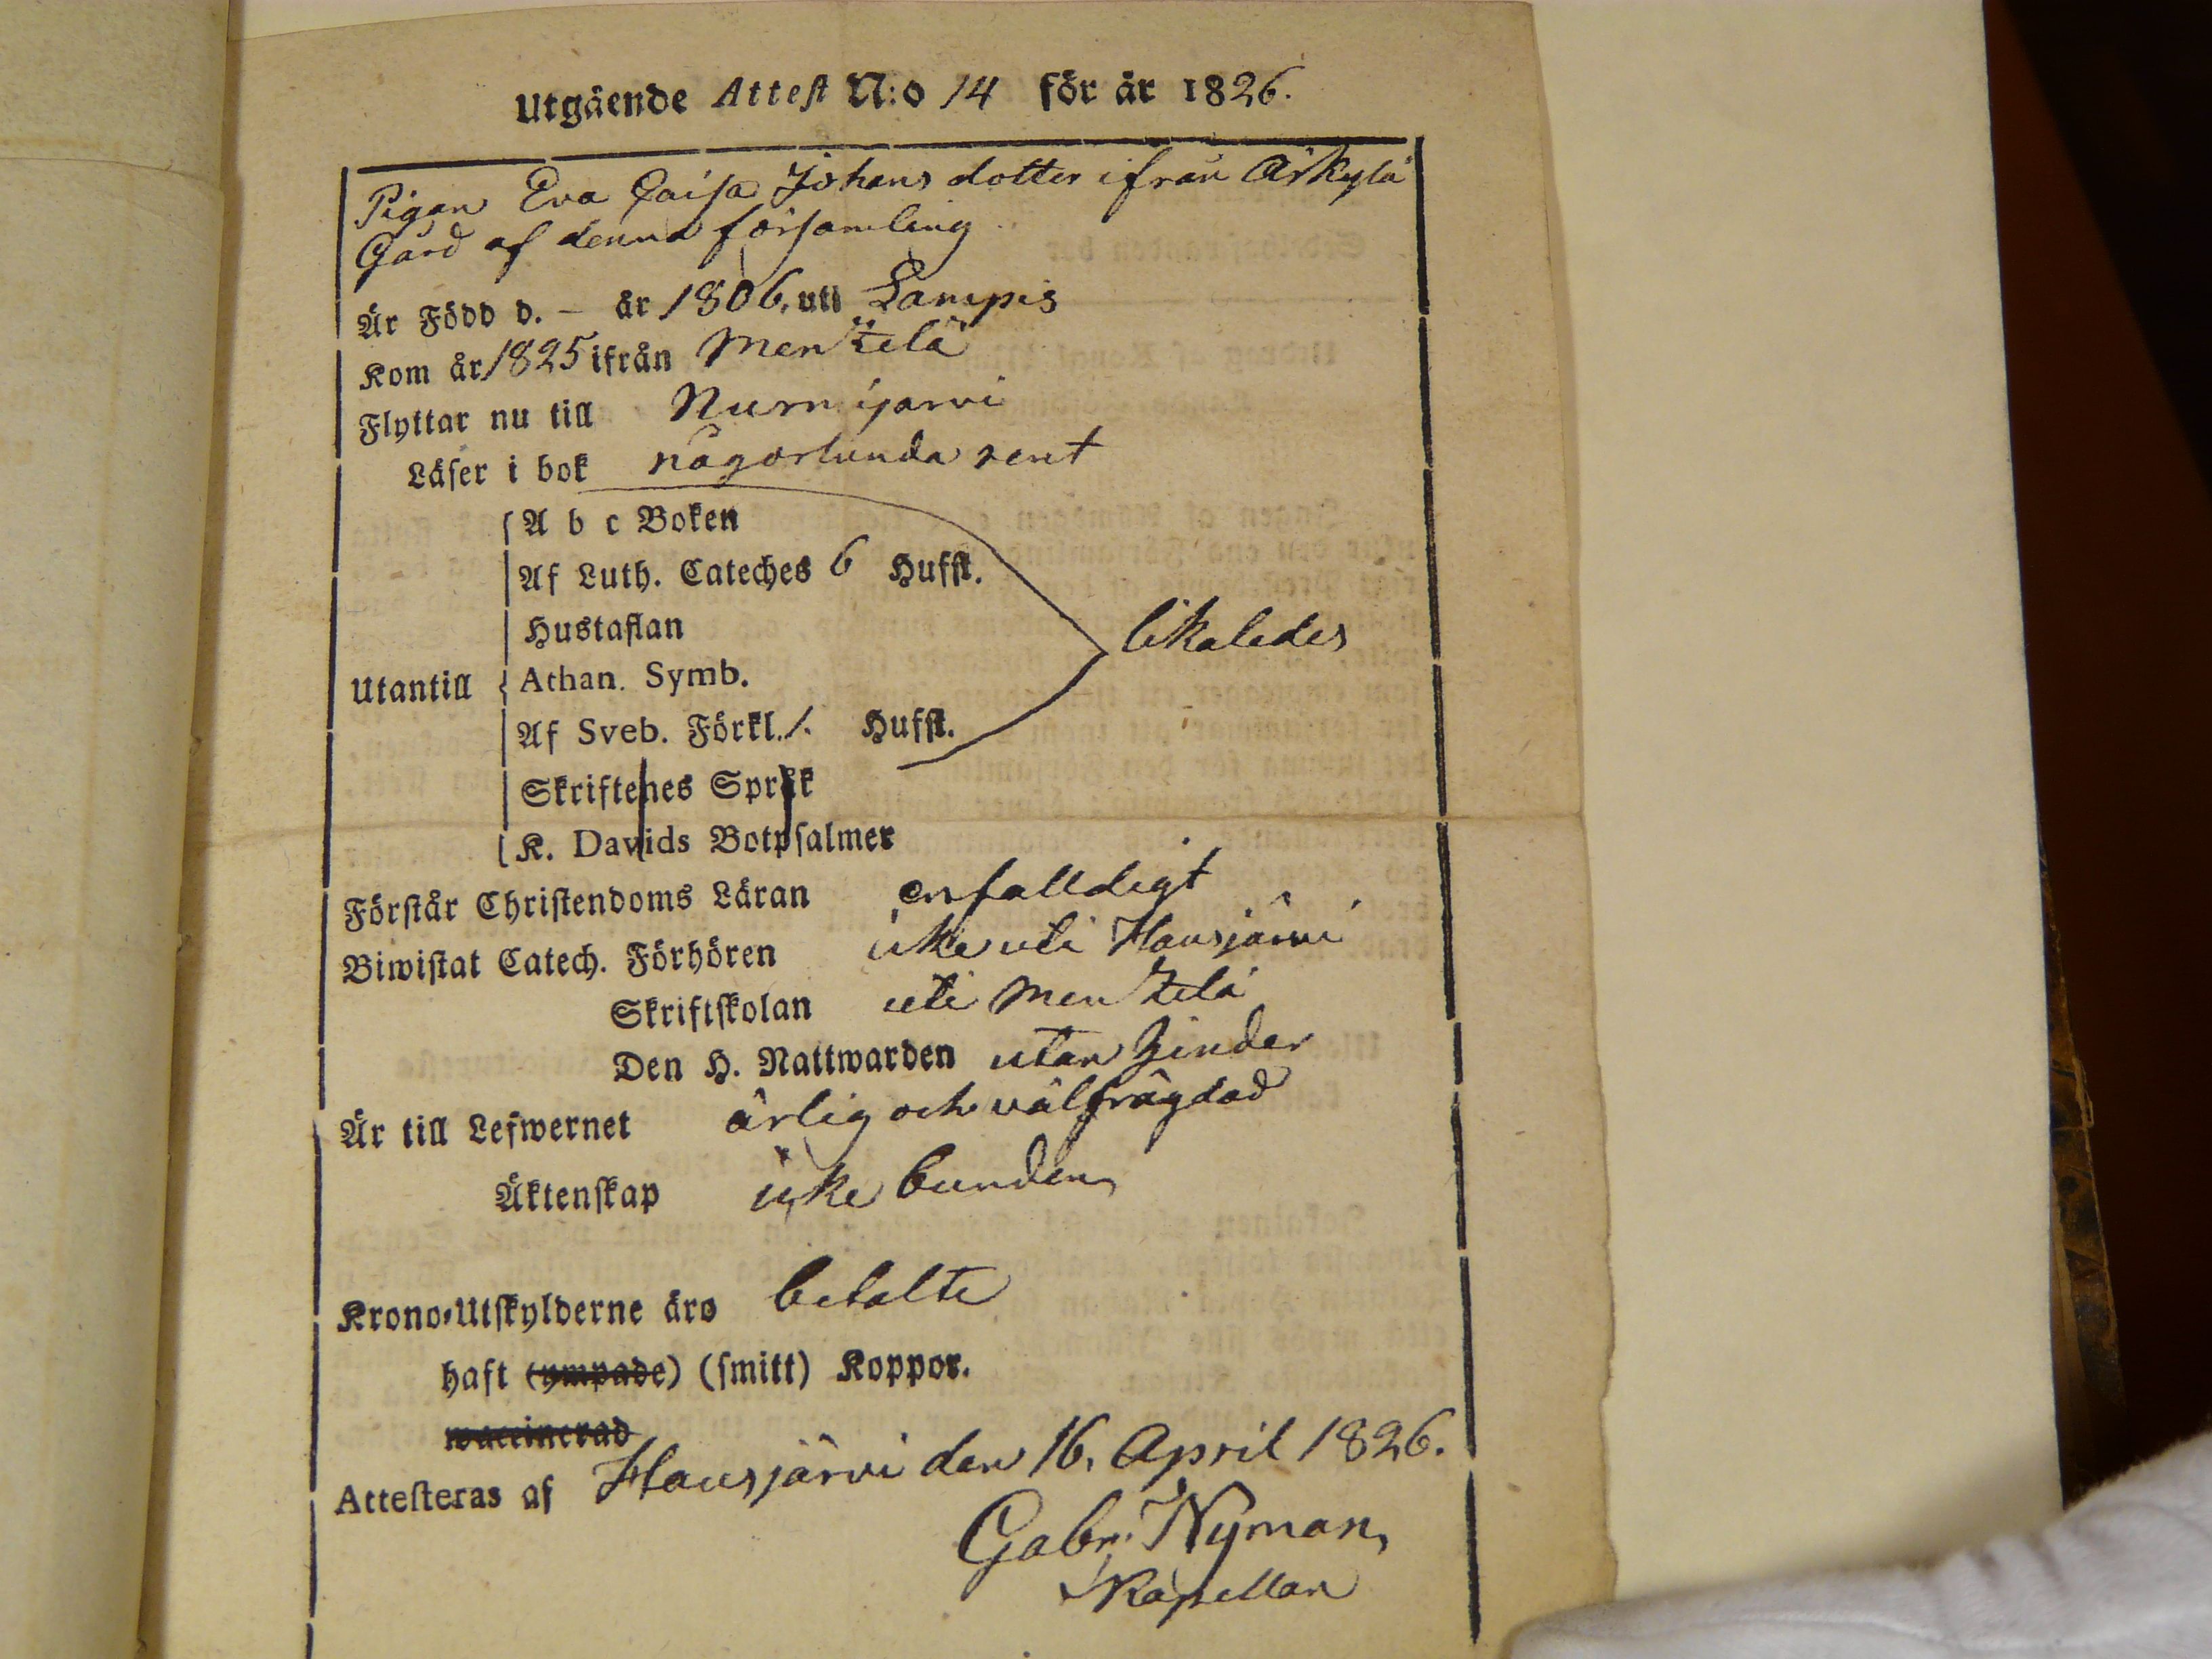 Utgående Attest N:o 14 för år 1826.
Pigan Eva Caisa Johans dotter ifrån Arkylä
Gård af denna församling
Är Född d. – år 1806. uti Lampis
Kom år 1825 ifrån Menzelä
Flyttar nu till Nurmijärvi
Läser i bok någorlunda rent
A b c Boken
Af Luth. Cateches 6 Hufst.
Hustaflan
likaledes
Utantill Athan. Symb.
Af Sveb. Förkl. 1. Hufst.
Skriftenes Språk
K. Davids Botpsalmer
Förstår Christendoms Läran enfalldigt
Biwistat Catech. Förhören icke uti Hausjärvi
Skriftskolan uti Menzelä
Den H. Nattwarden utan hinder
Är till Lefwernet ärlig och välfrägdad
Äktenskap icke bunden
Krono-Utskylderne äro betalte
haft (ympade) (smitt) Koppor.
waccinerad
Attesteras af Hausjärvi den 16. April 1826.
Gabr. Nyman
Kapellan